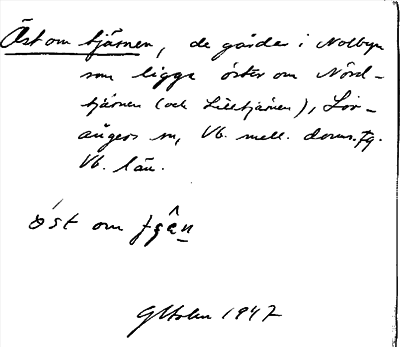 Öst om tjärnen, de gårdar i Nolbyn
som ligga öster om Nörd-
tjärnen (och Lilltjärnen), Löv-
ångers sn, Vb. mell. doms. fg.
Vb. län.
öst om
GHolm 1947